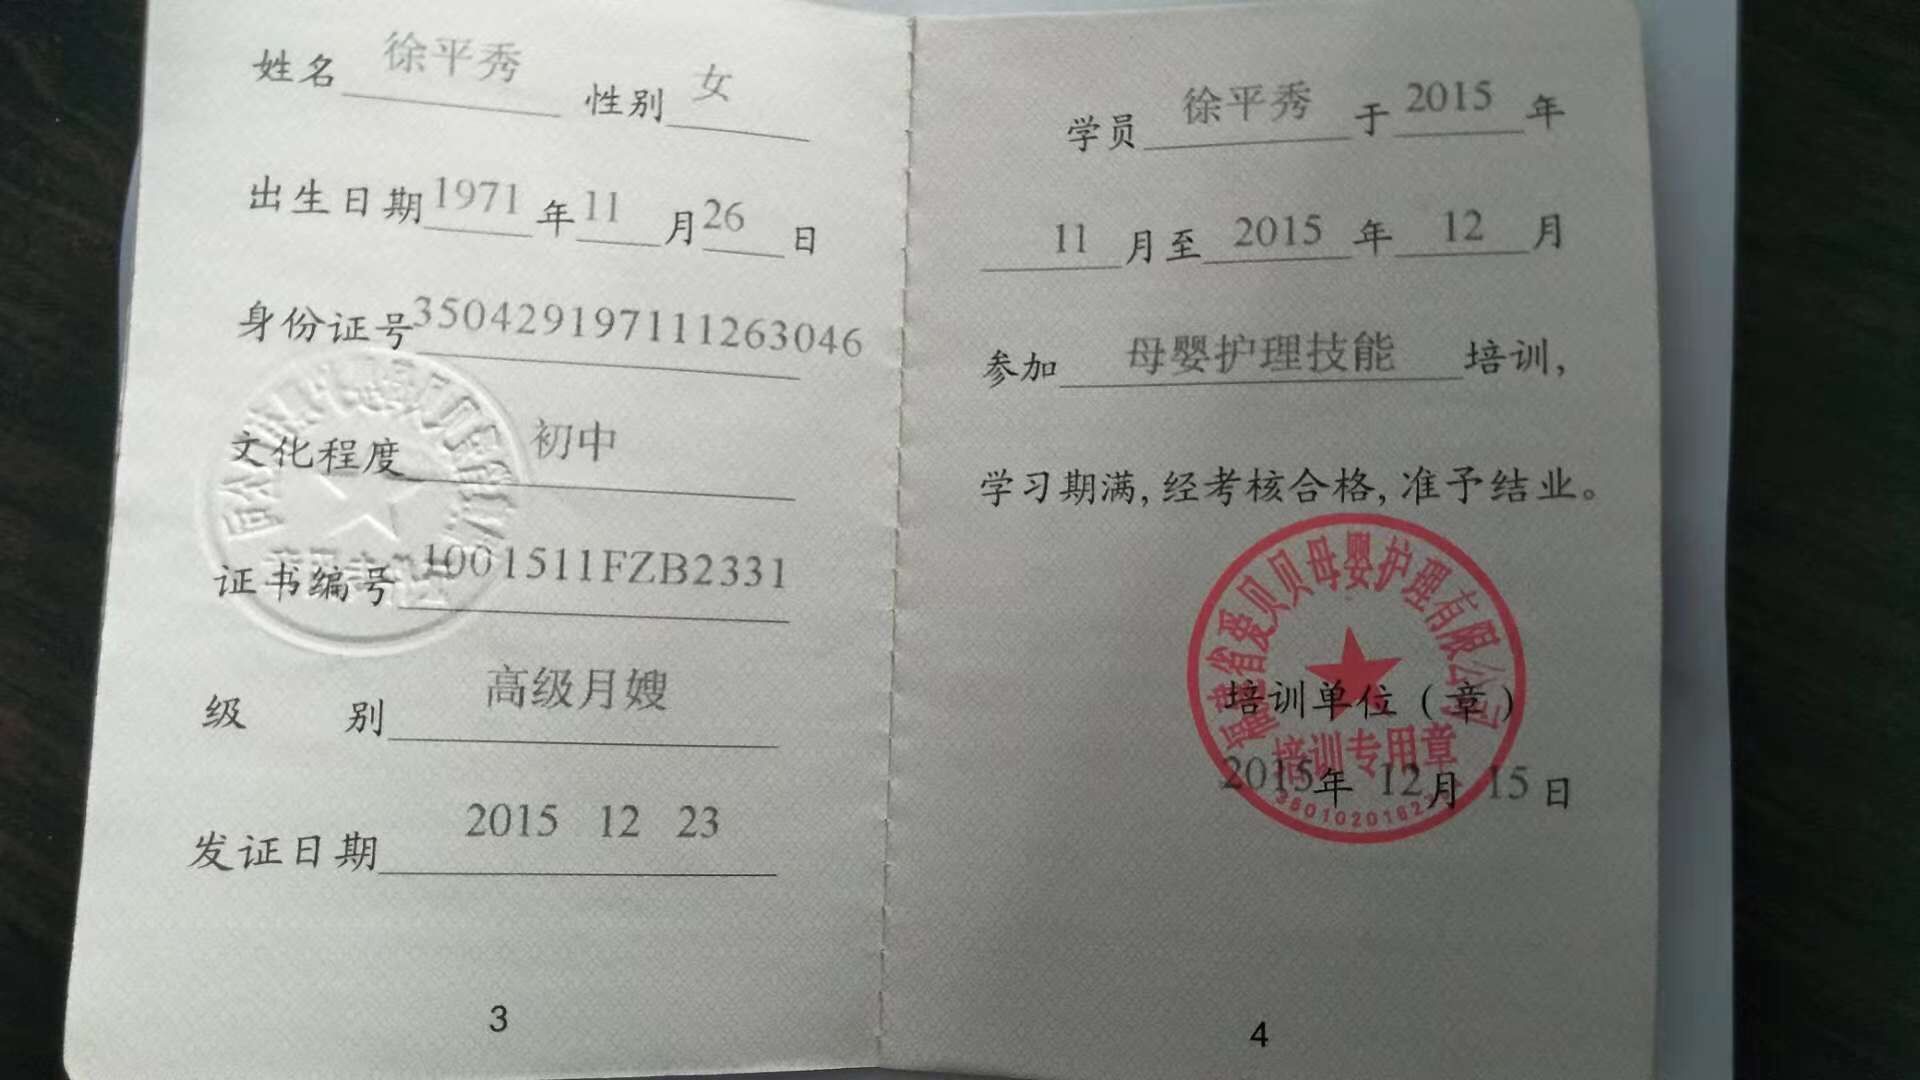 姓名 徐平秀 性别 女
出生日期 1971 年 11 月 26 日
身份证号 350429197111263046
文化程度 初中
证书编号 1001511FZB2331
级 别 高级月嫂
发证日期 2015 12 23
3
学员 徐平秀 于 2015 年
11 月至 2015 年 12 月
参加 母婴护理技能 培训,
学习期满,经考核合格,准予结业。
福建省爱贝贝母婴护理有限公司
培训单位(章)
培训专用章
2015年 12月 15日
4